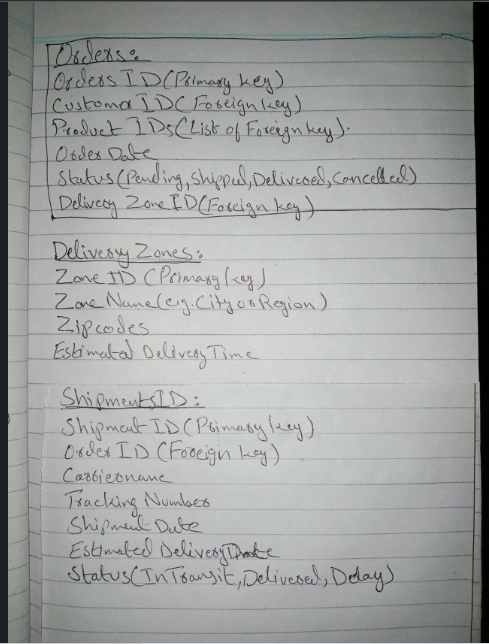 Orders:
Orders ID (Primary key)
Customer ID (Foreign key)
Product IDs (List of Foreign key).
Order Date
Status (Pending, Shipped, Delivered, Cancelled)
Delivery Zone ID (Foreign key)
Delivery Zones:
Zone ID (Primary key)
Zone Name (e.g. City or Region)
Zipcodes
Estimated Delivery Time
Shipments ID:
Shipment ID (Primary key)
Order ID (Foreign key)
Carriername
Tracking Number
Shipment Date
Estimated Delivery Date
Status (In Transit, Delivered, Delay)